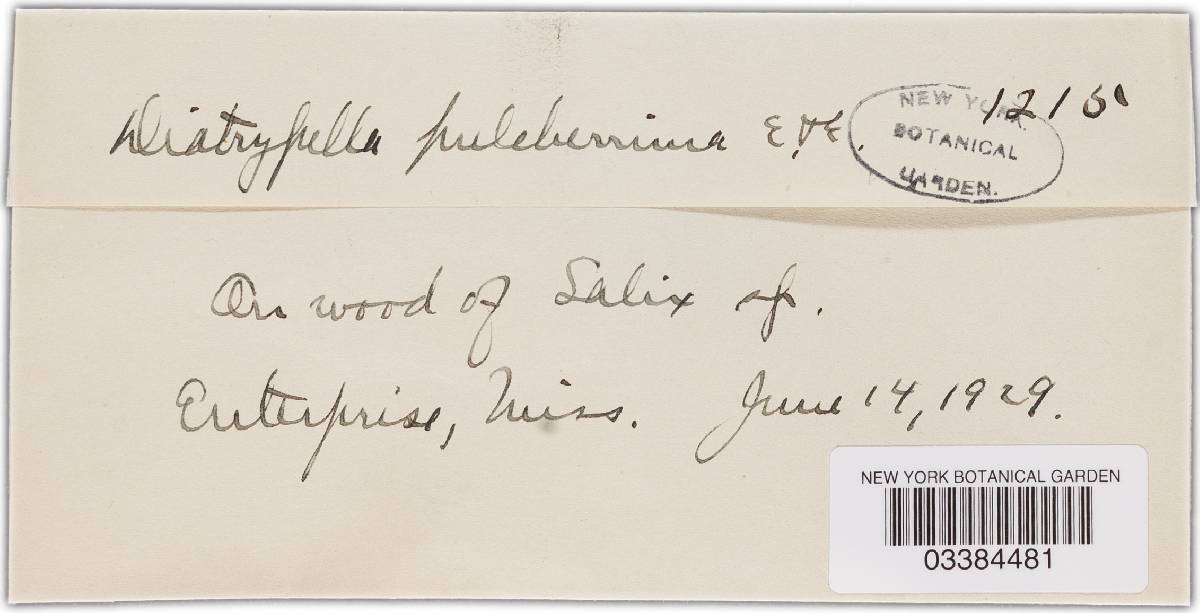 Diatrypella pulcherrima E.&E. 1215
NEW YORK
BOTANICAL
GARDEN.
On wood of Salix sp.
Enterprise, Miss. June 14, 1929.
NEW YORK BOTANICAL GARDEN
03384481